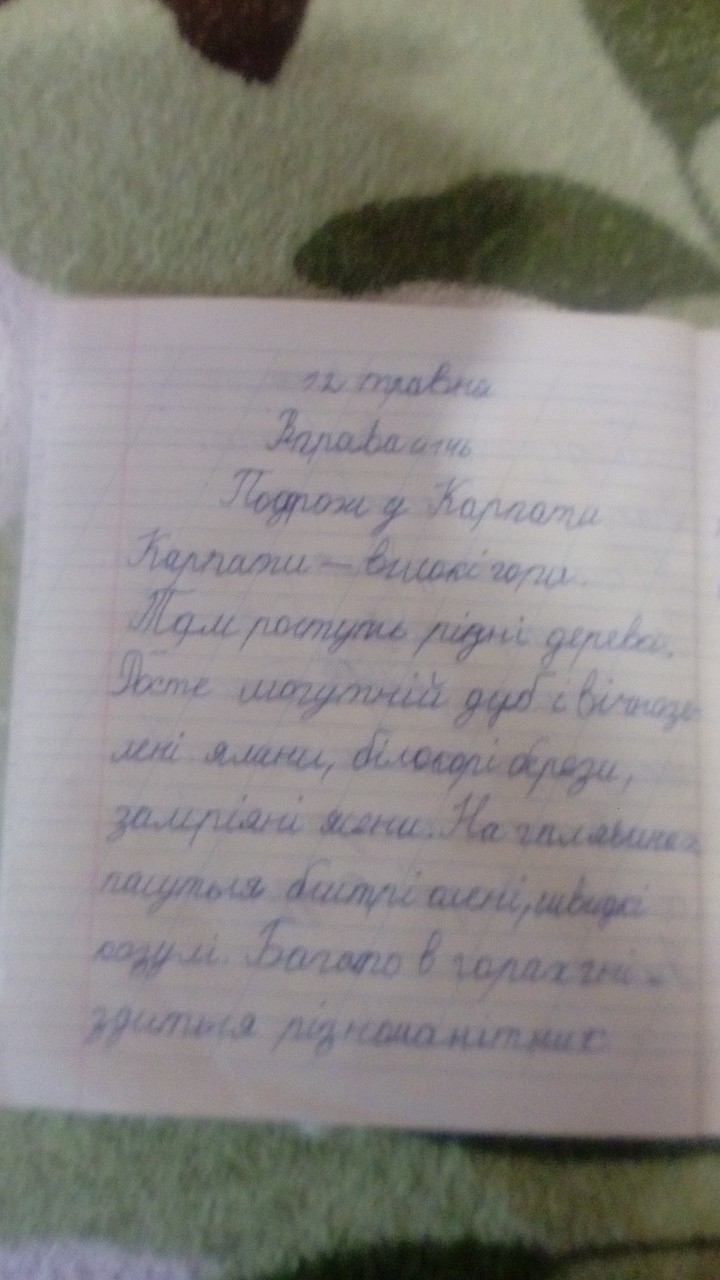 12 травня
Вправа
Подрож у Карпати
Карпати – високі гори.
Там ростуть різні дерева.
Росте могутній дуб і вічнозе-
лені ялини, білокорі берези,
замріяні ясени. На галявинах
пасуться бистрі олені, швидкі
козулі. Багато в горах гні-
здиться різноманітних